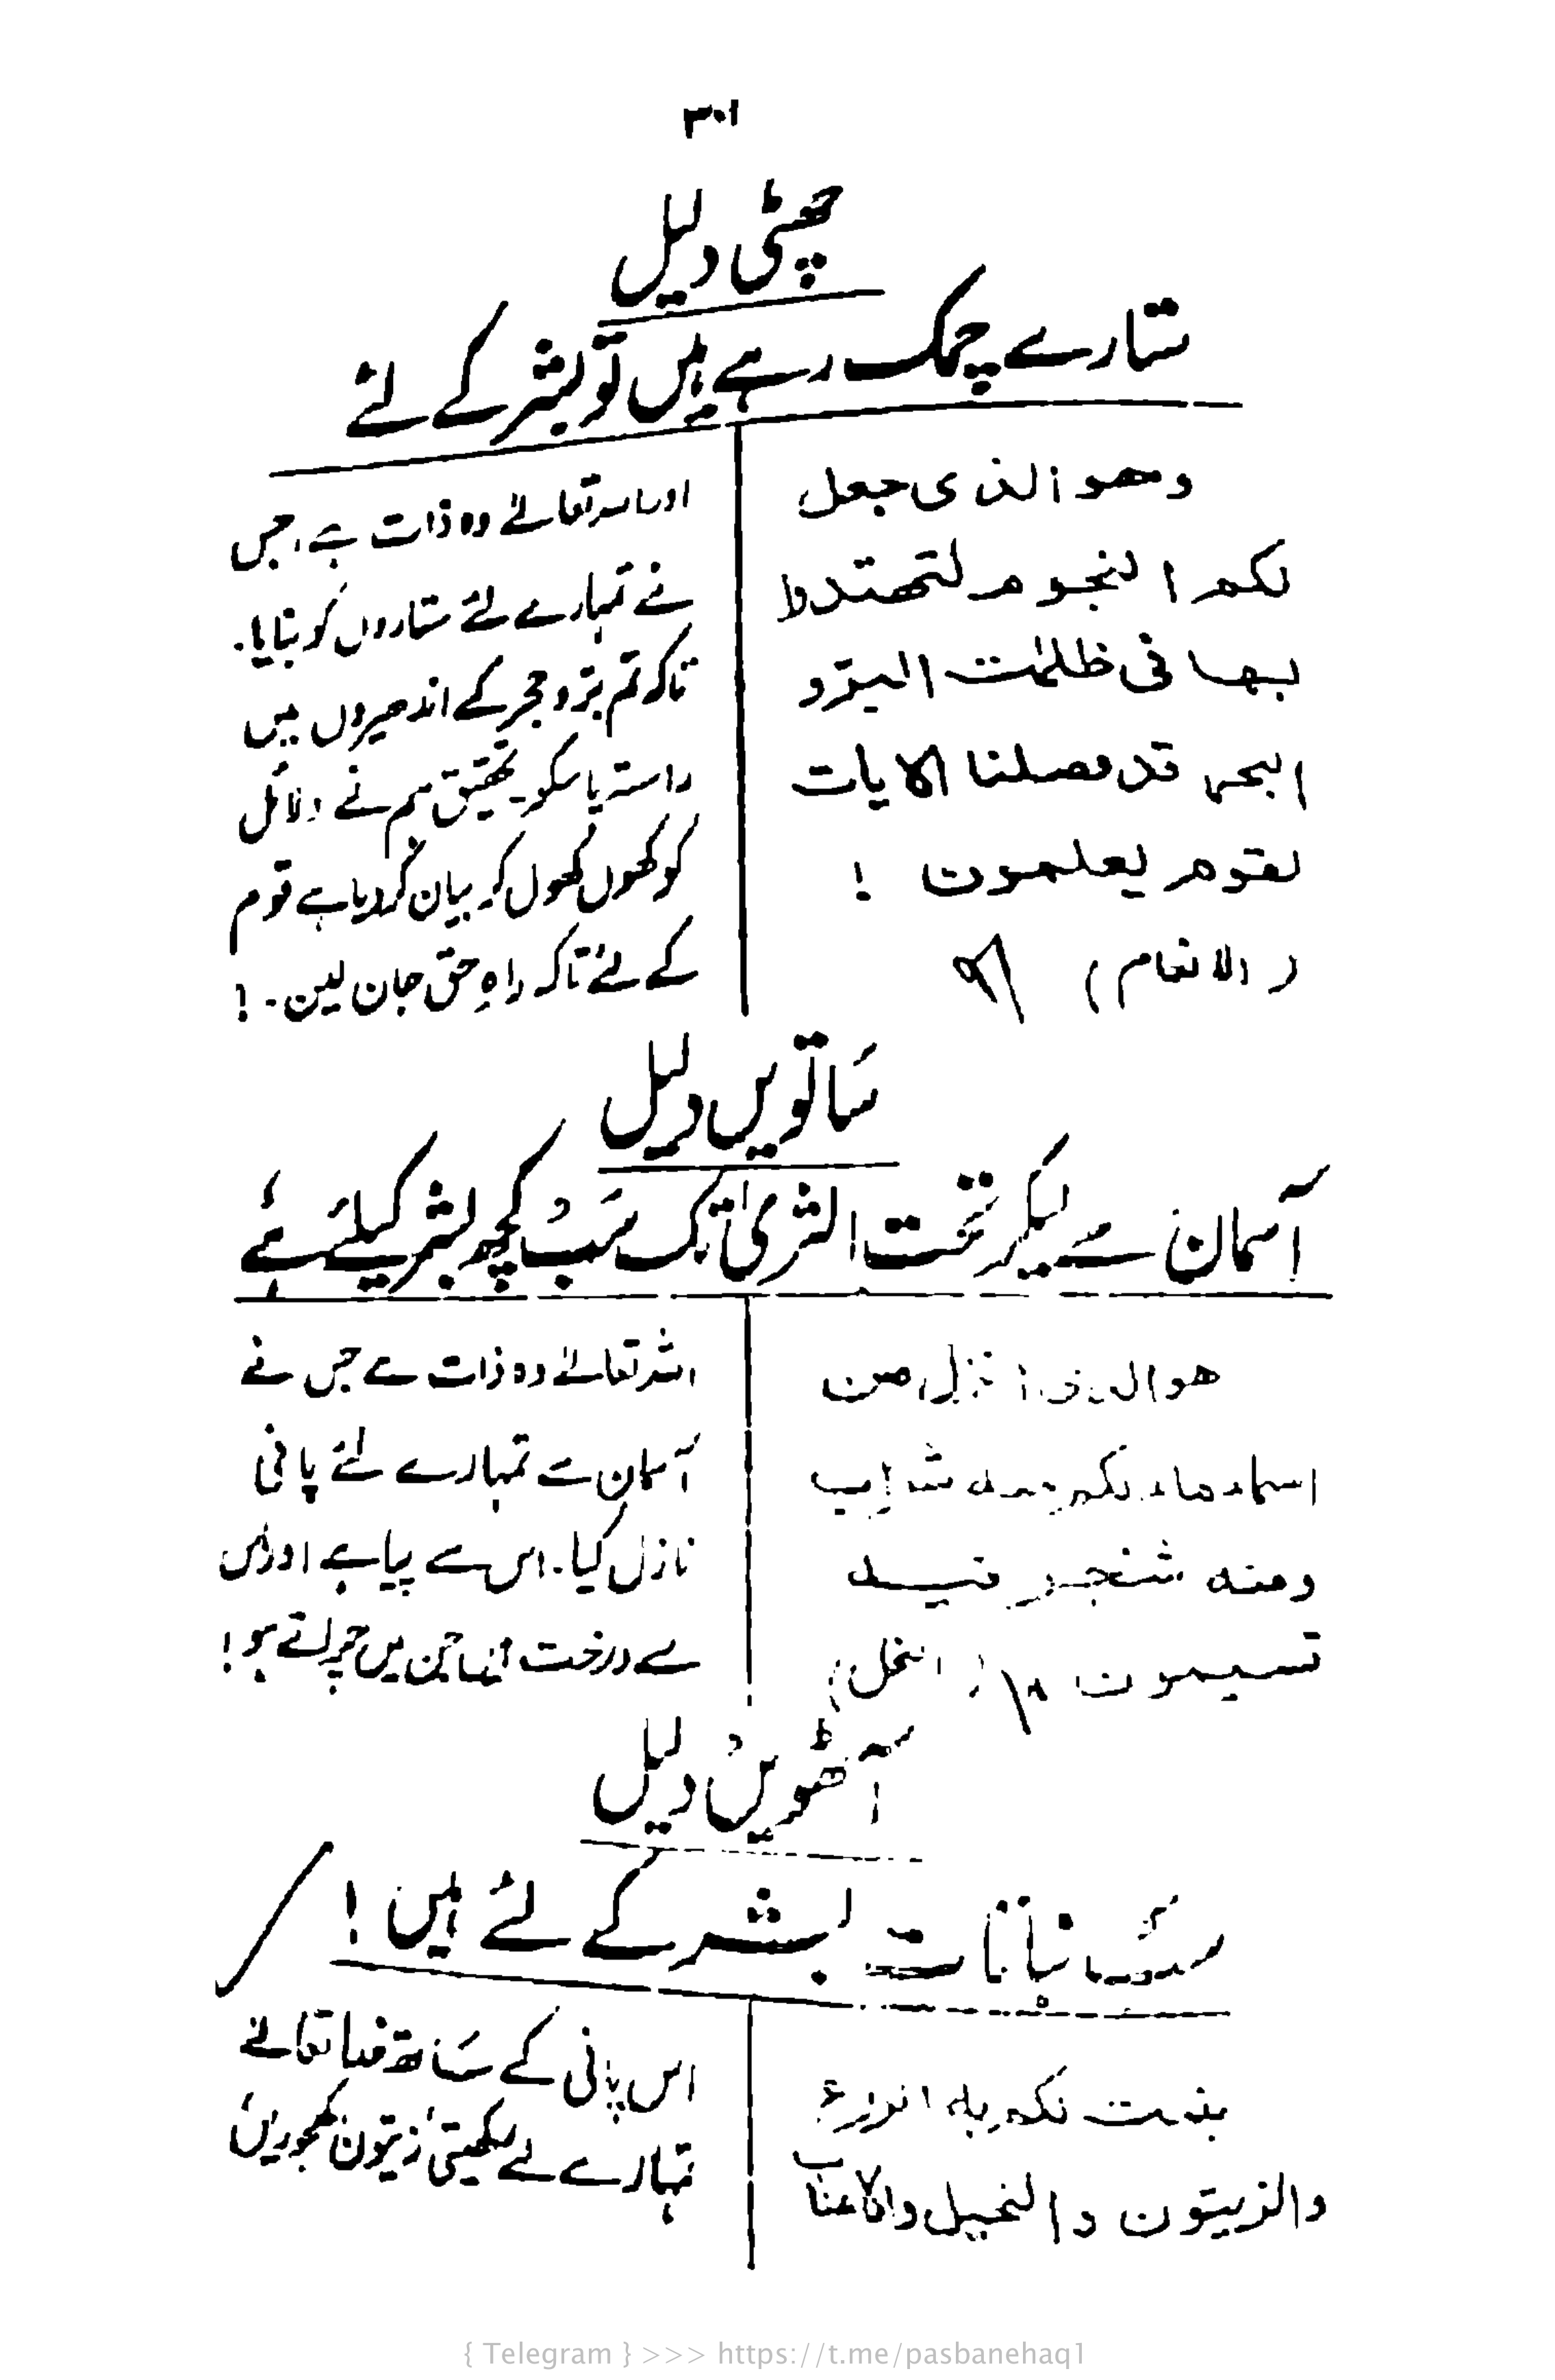 ۳۰۱
چھٹی دلیل
ستارے چمک رہے ہیں تو بشر کے لئے
وهو الذى جعل
لكم النجوم لتهتدوا
بها فى ظلمٰت البرّ و
البحر قد فصلنا الايات
لقوم يعلمون !
(الانعام)
اور اللہ تعالےٰ وہ ذات ہے، جس
نے تمہارے لئے ستاروں کو بنایا.
تاکہ تم برّ و بحر کے اندھیروں میں
راستہ پا سکو۔ تحقیق ہم نے دلائل
کو کھول کھول کر بیان کر دیا ہے قوم
کے لئے تاکہ راہِ حق جان لیں۔ !
ساتویں دلیل
آسمان سے لیکر تحت الثریٰ تک سب کچھ بشر کیلئے ہے
هو الذى انزل من
السماء ماء لكم منه شراب
ومنه شجر فيه
تسيمون (النحل)
اللہ تعالےٰ وہ ذات ہے جس نے
آسمان سے تمہارے لئے پانی
نازل کیا. اس سے پیا ہے اور اس
سے درخت میں چراتے ہو !
آٹھویں دلیل
سب نباتات بشر کے لئے ہیں !
ينبت لكم به الزرع
والزيتون والنخيل والاعناب
اس پانی کے ساتھ خدا تعالےٰ
تمہارے لئے کھیتی، زیتون، کھجوریں
{ Telegram } >>> https://t.me/pasbanehaq1